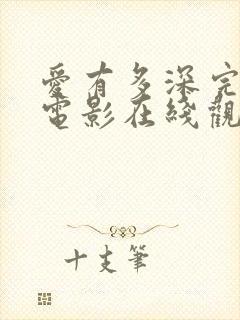 愛有多深完
電影在綫觀
十支筆